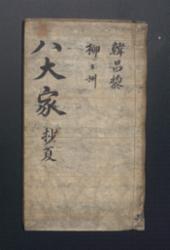 韓昌黎
柳々州
八大家
抄夏